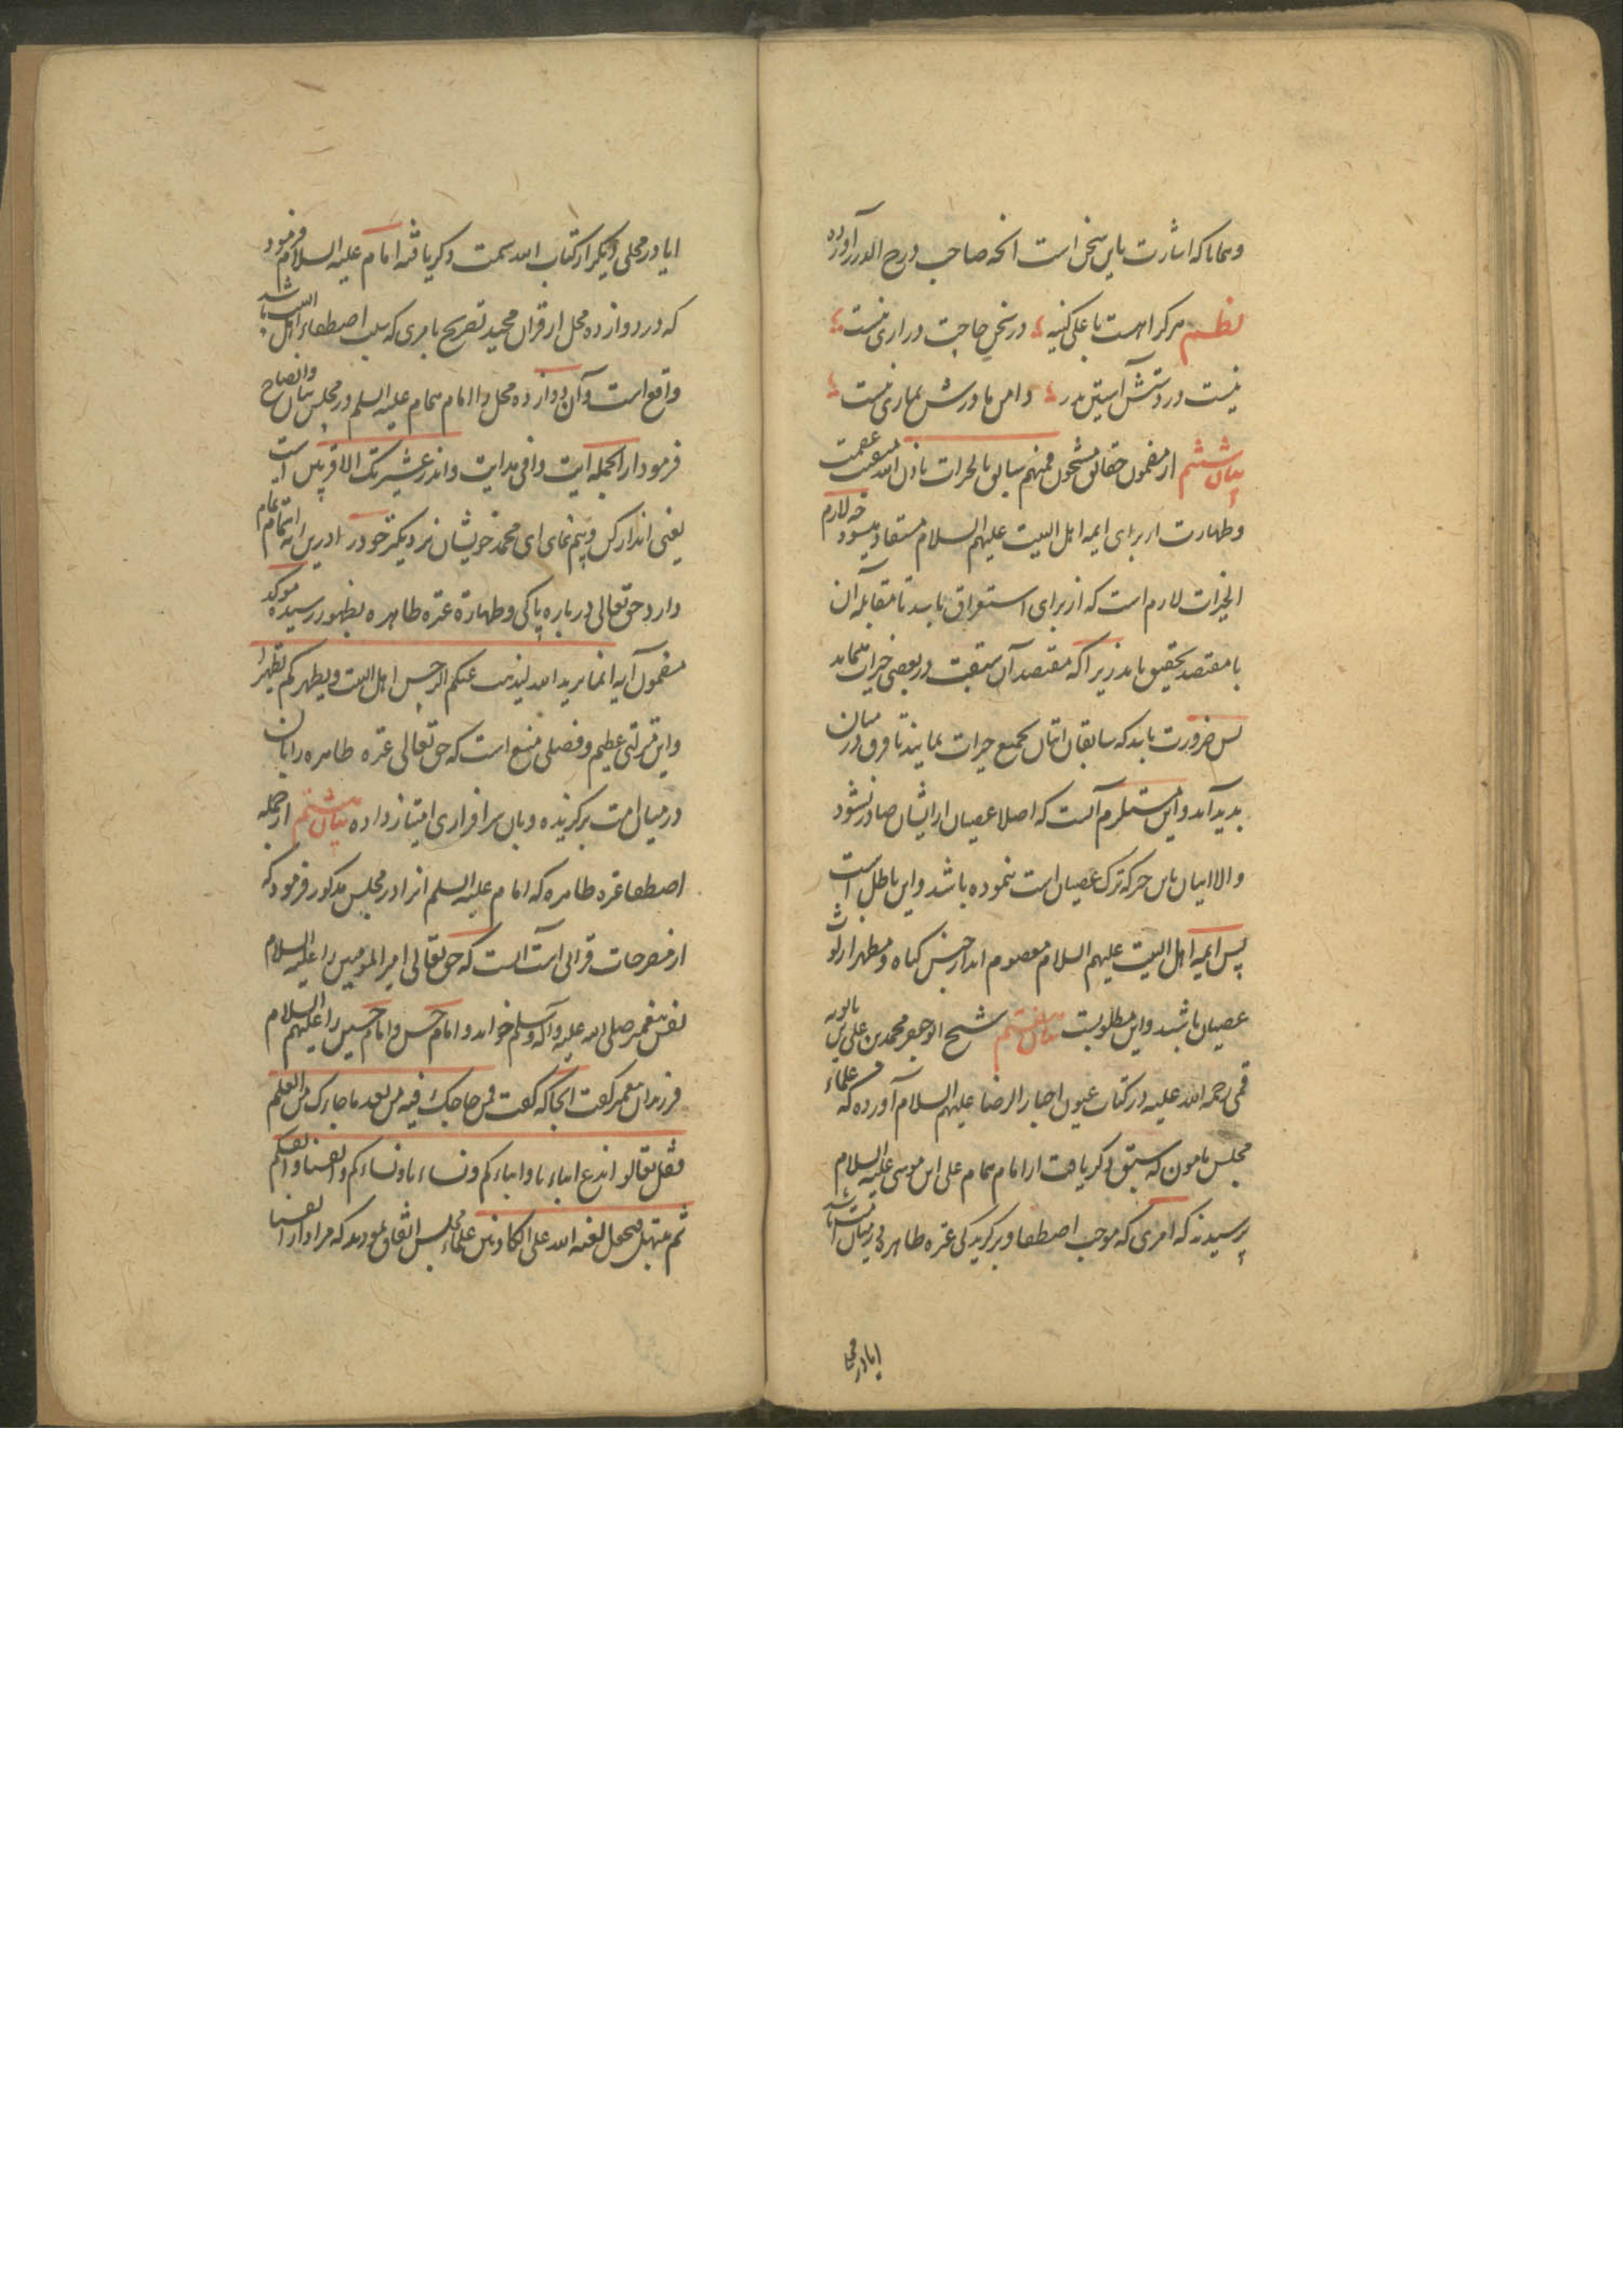 وهمانا که اشارت باین سخن است آنچه صاحب درج الدرر آورده
نظم هرکرا هست با علی کینه در سخن حاجت درازی نیست
نیست در دستش آستین پدر دامن مادرش نمازی نیست
بیان ششم از مضمون حقایق مشحون فمنهم سابق بالخیرات باذن الله عصمت
وطهارت از برای ایمه اهل البیت علیهم السلام مستفاد میشود چه لام
الخیرات لازم است که از برای استغراق باشد تا مقابله آن
با مقتصد تحقیق یابد زیرا که مقتصد آن سبقت در بعضی خیرات
پس ضرورت باید که سابقان اتیان بجمیع خیرات نمایند تا فرق در میان
پدید آید و این مستلزم آنست که اصلا عصیان از ایشان صادر نشود
والا اتیان باین خیر که ترک عصیان است ننموده باشد و این باطل است
پس ایمه اهل البیت علیهم السلام معصوم اند از جنس گناه و مطهر از لوث
عصیان باشند و این مطلوبست بیان هفتم شیخ ابوجعفر محمد بن علی بن بابویه
قمی رحمة الله علیه در کتاب عیون اخبار الرضا علیهم السلام آورده که علماء
مجلس مامون که سبق ذکر یافت از امام همام علی ابن موسی علیه السلام
پرسیدند که امری که موجب اصطفا و برگزیدگی عتره طاهره در میان امت باشد
ایا در محلی
ایا در محلی دیگر از کتاب الله سمت ذکر یافته امام علیه السلام فرمود
که در دوازده محل از قران مجید تصریح بامری که سبب اصطفاء اهل البیت باشد
واقع است و آن دوازده محل را امام همام علیه السلم در مجلس بیان وایضاح
فرمود از آنجمله آیت وافی هدایت وانذر عشیرتک الاقربین است
یعنی انذار کن و بیم نمای ای محمد خویشان نزدیکتر خود را و درین ایه اهتمام تمام
دارد حق تعالی درباره پاکی وطهارة عتره طاهره بظهور رسیده موکد
مضمون آیه انما یرید الله لیذهب عنکم الرجس اهل البیت ویطهرکم تطهیرا
واین منزلتی عظیم و فضلی منیع است که حق تعالی عتره طاهره را بان
در میان امت برگزیده و بان سرافرازی امتیاز داده بیان هشتم از جمله
اصطفا عتره طاهره که امام علیه السلم انرا در مجلس مذکور فرمود که
از مصرحات قرانی است آنست که حق تعالی امیر المومنین را علیه السلام
نفس پیغمبر صلی الله علیه وآله وسلم خواند و امام حسن و امام حسین را علیهم السلام
فرزندان پیغمبر گفت آنجا که گفت فمن حاجک فیه من بعد ما جاءک من العلم
فقل تعالوا ندع ابناءنا وابناءکم ونساءنا ونساءکم وانفسنا وانفسکم
ثم نبتهل فنجعل لعنه الله علی الکاذبین علماء مجلس اتفاق نمودند که مراد از انفسنا